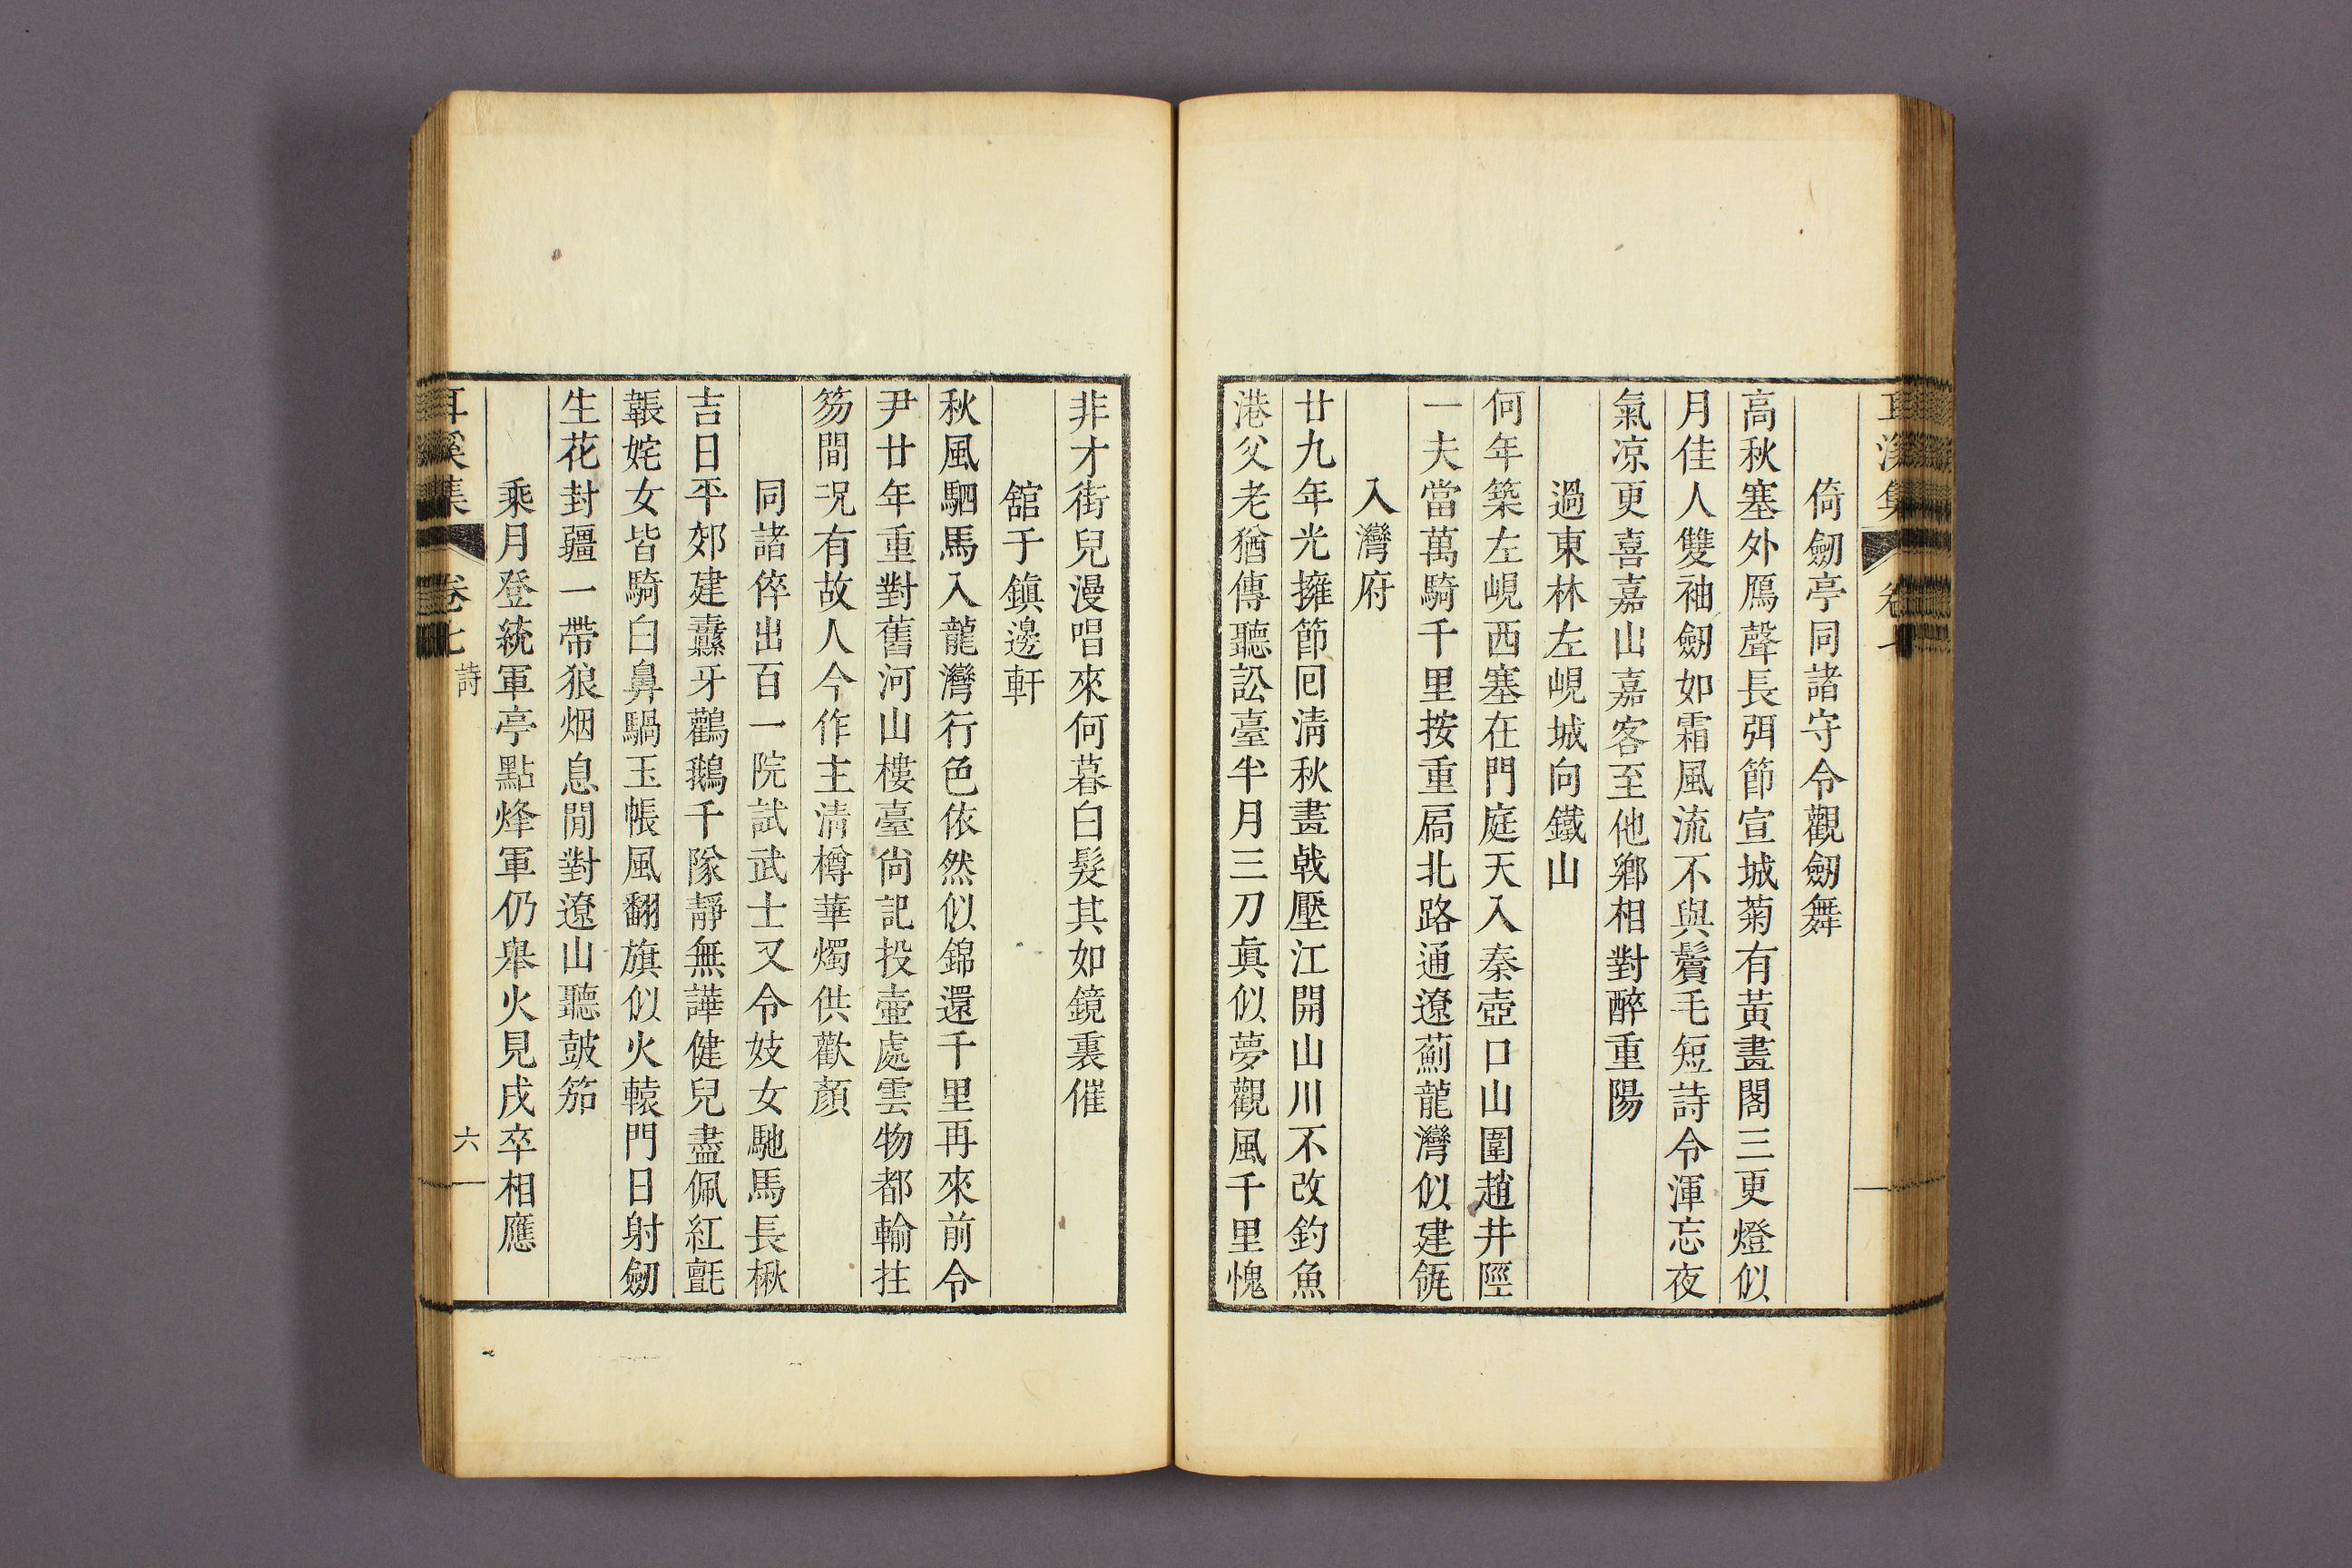 倚劒亭同諸守令觀劒舞
高秋塞外鴈聲長弭節宣城菊有黃畫閣三更燈似
月佳人雙袖劒如霜風流不與鬢毛短詩令渾忘夜
氣凉更喜嘉山嘉客至他鄕相對醉重陽
過東林左峴城向鐵山
何年築左峴西塞在門庭天入秦壺口山圍趙井陘
一夫當萬騎千里按重扃北路通遼薊龍灣似建瓴
入灣府
廿九年光擁節回淸秋畫戟壓江開山川不改釣魚
港父老猶傳聽訟臺半月三刀眞似夢觀風千里愧
非才街兒漫唱來何暮白髮其如鏡裏催
舘于鎭邊軒
秋風駟馬入龍灣行色依然似錦還千里再來前令
尹廿年重對舊河山樓臺尙記投壺處雲物都輸拄
笏間况有故人今作主淸樽華燭供歡顏
同諸倅出百一院試武士又令妓女馳馬長楸
吉日平郊建纛牙鸛鵝千隊靜無譁健兒盡佩紅氈
韔姹女皆騎白鼻騧玉帳風翻旗似火轅門日射劒
生花封疆一帶狼烟息閒對遼山聽鼓笳
乘月登統軍亭點烽軍仍舉火見戍卒相應
耳溪集 卷七 詩 六